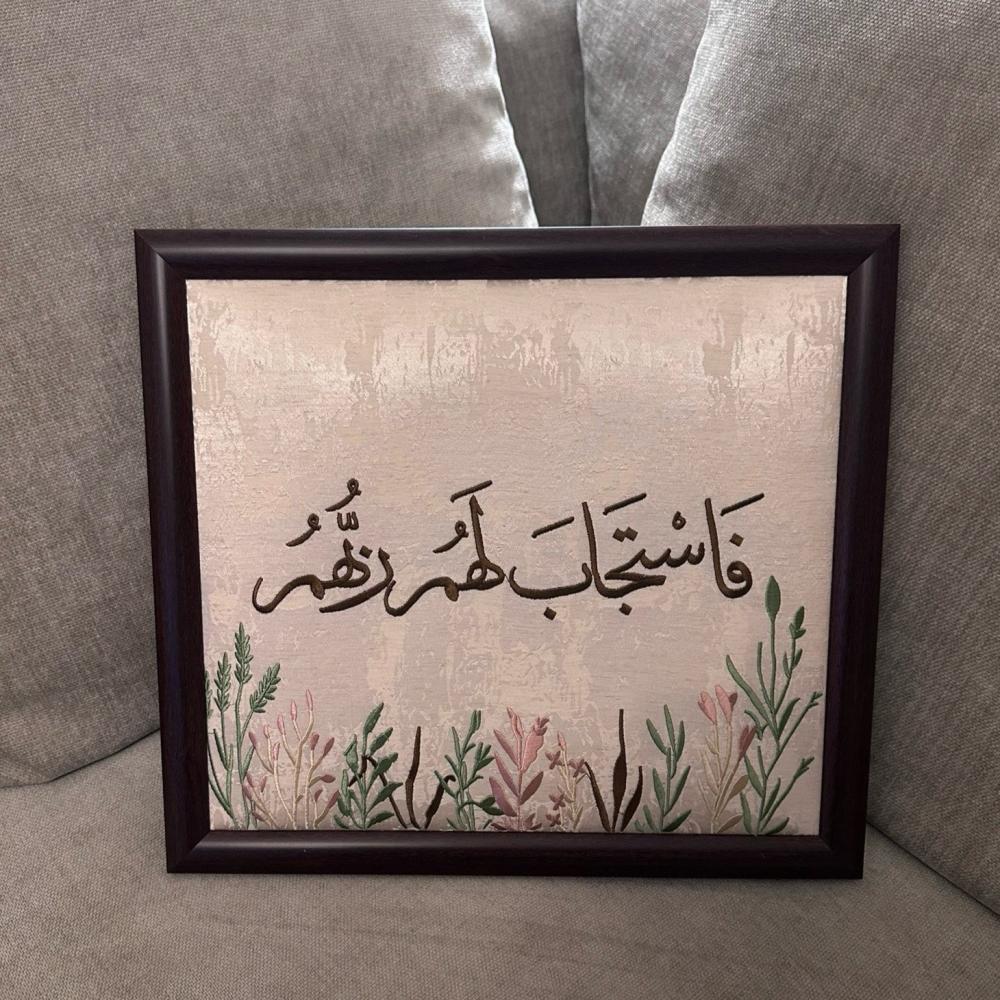 فَاسْتَجَابَ لَهُمْ رَبُّهُمْ